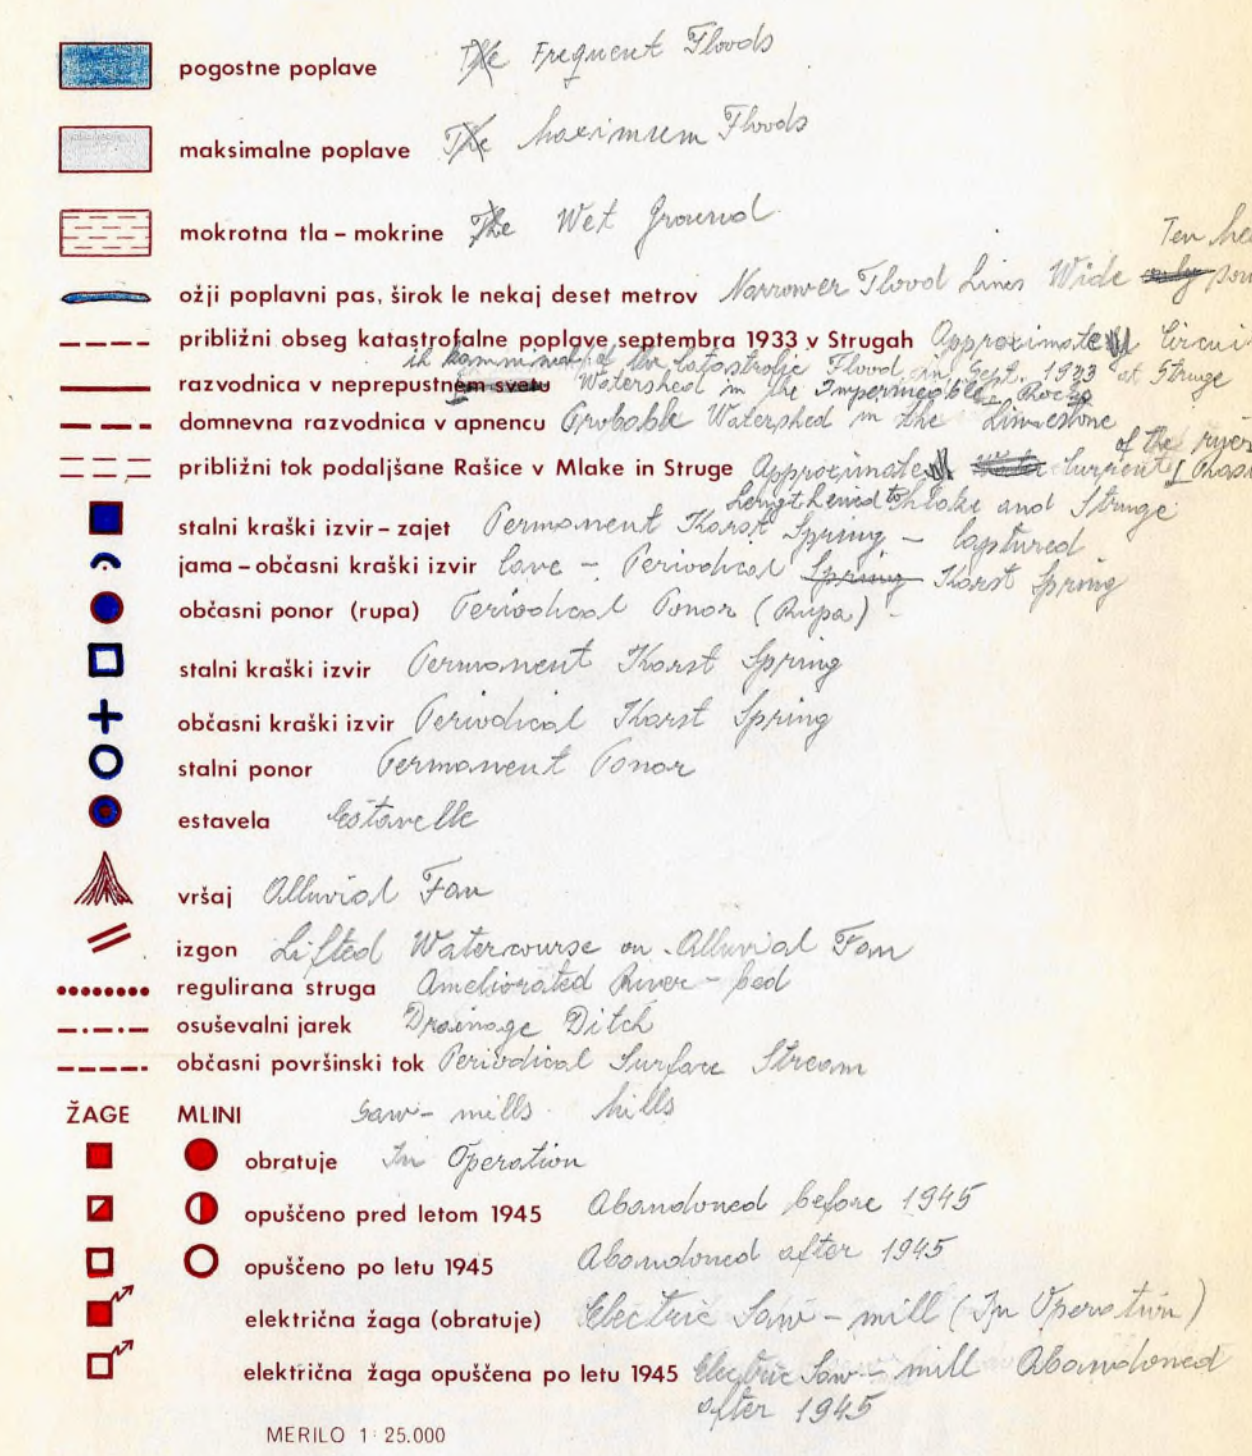 pogostne poplave The Frequent Floods
maksimalne poplave The Maximum Floods
mokrotna tla – mokrine The Wet Ground
Ten
ožji poplavni pas, širok le nekaj deset metrov Narrower Flood Lines Wide only
približni obseg katastrofalne poplave septembra 1933 v Strugah Approximate
of the Catastrofic Flood in Sept. 1933 at Struge
razvodnica v neprepustnem svetu Watershed in the Impermeable Rocks
domnevna razvodnica v apnencu Probable Watershed in the Limestone
of the
približni tok podaljšane Rašice v Mlake in Struge Approximate Current
Lengthened to Mlake and Struge
stalni kraški izvir – zajet Permanent Karst Spring – Captured
jama – občasni kraški izvir Cave – Periodical Spring Karst Spring
občasni ponor (rupa) Periodical Ponor (Rupa)
stalni kraški izvir Permanent Karst Spring
občasni kraški izvir Periodical Karst Spring
stalni ponor Permanent Ponor
estavela Estavelle
vršaj Alluvial Fan
izgon Lifted Watercourse on Alluvial Fan
regulirana struga Ameliorated River-bed
osuševalni jarek Drainage Ditch
občasni površinski tok Periodical Surface Stream
ŽAGE MLINI Saw-mills Mills
obratuje In Operation
opuščeno pred letom 1945 Abandoned before 1945
opuščeno po letu 1945 Abandoned after 1945
električna žaga (obratuje) Electric Saw-mill (In Operation)
električna žaga opuščena po letu 1945 Electric Saw-mill Abandoned
after 1945
MERILO 1:25.000